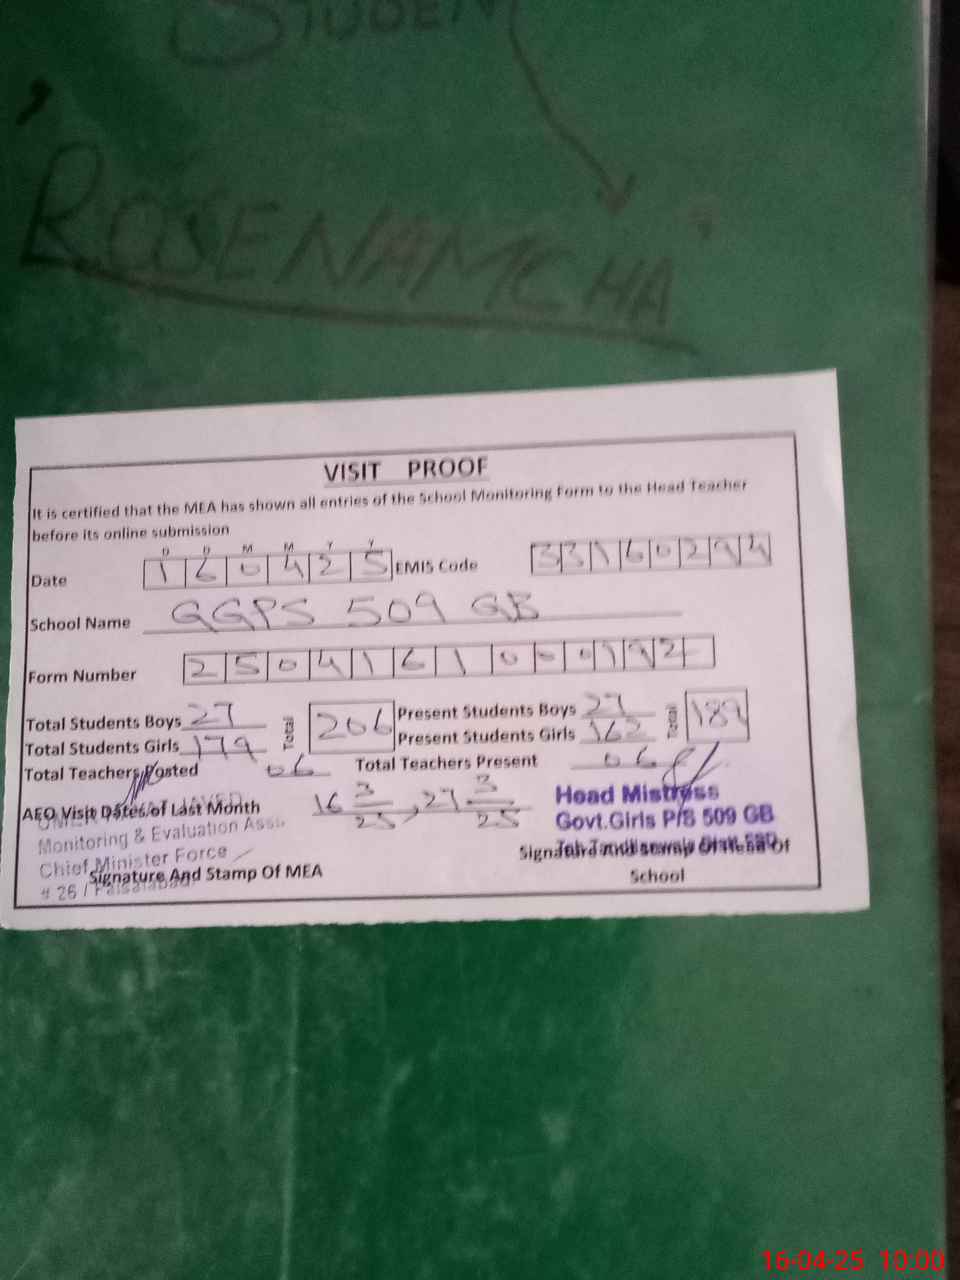 STUDEN
ROSENAMCHA
VISIT PROOF
It is certified that the MEA has shown all entries of the School Monitoring Form to the Head Teacher
before its online submission
D D M M Y Y
Date 1 6 0 4 2 5 EMIS Code 3 3 1 6 0 2 9 4
School Name GGPS 509 GB
Form Number 2 5 0 4 1 6 1 0 0 0 1 9 2
Total Students Boys 27 Total 206 Present Students Boys 27 Total 189
Total Students Girls 179 Present Students Girls 162
Total Teachers Posted 06 Total Teachers Present 06
AEO Visit Dates of Last Month 16 3/25, 27 3/25
Head Mistress
Govt.Girls P/S 509 GB
Monitoring & Evaluation
Chief Minister Force
# 26 / Faisalabad
Signature And Stamp Of MEA
Signature And Stamp Of Head Of
School
16-04-25 10:00